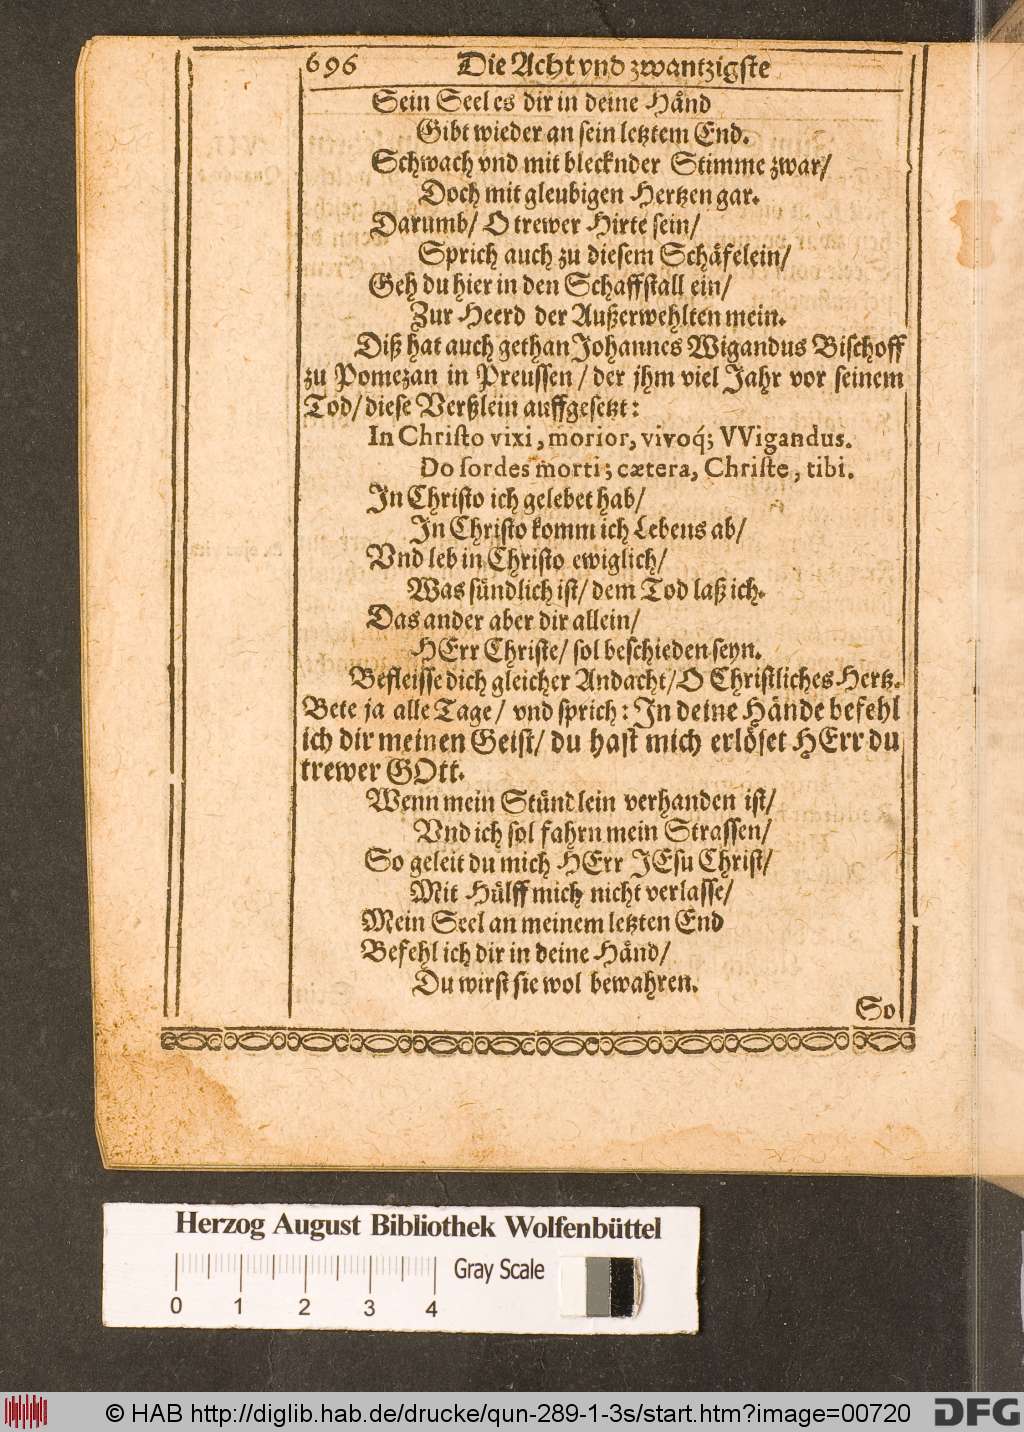 696 Die Acht vnd zwantzigste
Sein Seel es dir in deine Hånd
Gibt wieder an sein letztem End.
Schwach vnd mit blecknder Stimme zwar/
Doch mit gleubigen Hertzen gar.
Darumb/ O trewer Hirte sein/
Sprich auch zu diesem Schåfelein/
Geh du hier in den Schaffstall ein/
Zur Heerd der Außerwehlten mein.
Diß hat auch gethan Johannes Wigandus Bischoff
zu Pomezan in Preussen / der jhm viel Jahr vor seinem
Tod/ diese Verßlein auffgesetzt:
In Christo vixi, morior, vivoq́; VVigandus.
Do sordes morti; cætera, Christe, tibi.
In Christo ich gelebet hab/
In Christo komm ich Lebens ab/
Vnd leb in Christo ewiglich/
Was sündlich ist/ dem Tod laß ich.
Das ander aber dir allein/
HErr Christe/ sol beschieden seyn.
Befleisse dich gleicher Andacht/ O Christliches Hertz.
Bete ja alle Tage/ vnd sprich: In deine Hånde befehl
ich dir meinen Geist/ du hast mich erlöset HErr du
trewer GOtt.
Wenn mein Stündlein verhanden ist/
Vnd ich sol fahrn mein Strassen/
So geleit du mich HErr JEsu Christ/
Mit Hülff mich nicht verlasse/
Mein Seel an meinem letzten End
Befehl ich dir in deine Hånd/
Du wirst sie wol bewahren.
So
Herzog August Bibliothek Wolfenbüttel
Gray Scale
0 1 2 3 4
© HAB http://diglib.hab.de/drucke/qun-289-1-3s/start.htm?image=00720 DFG